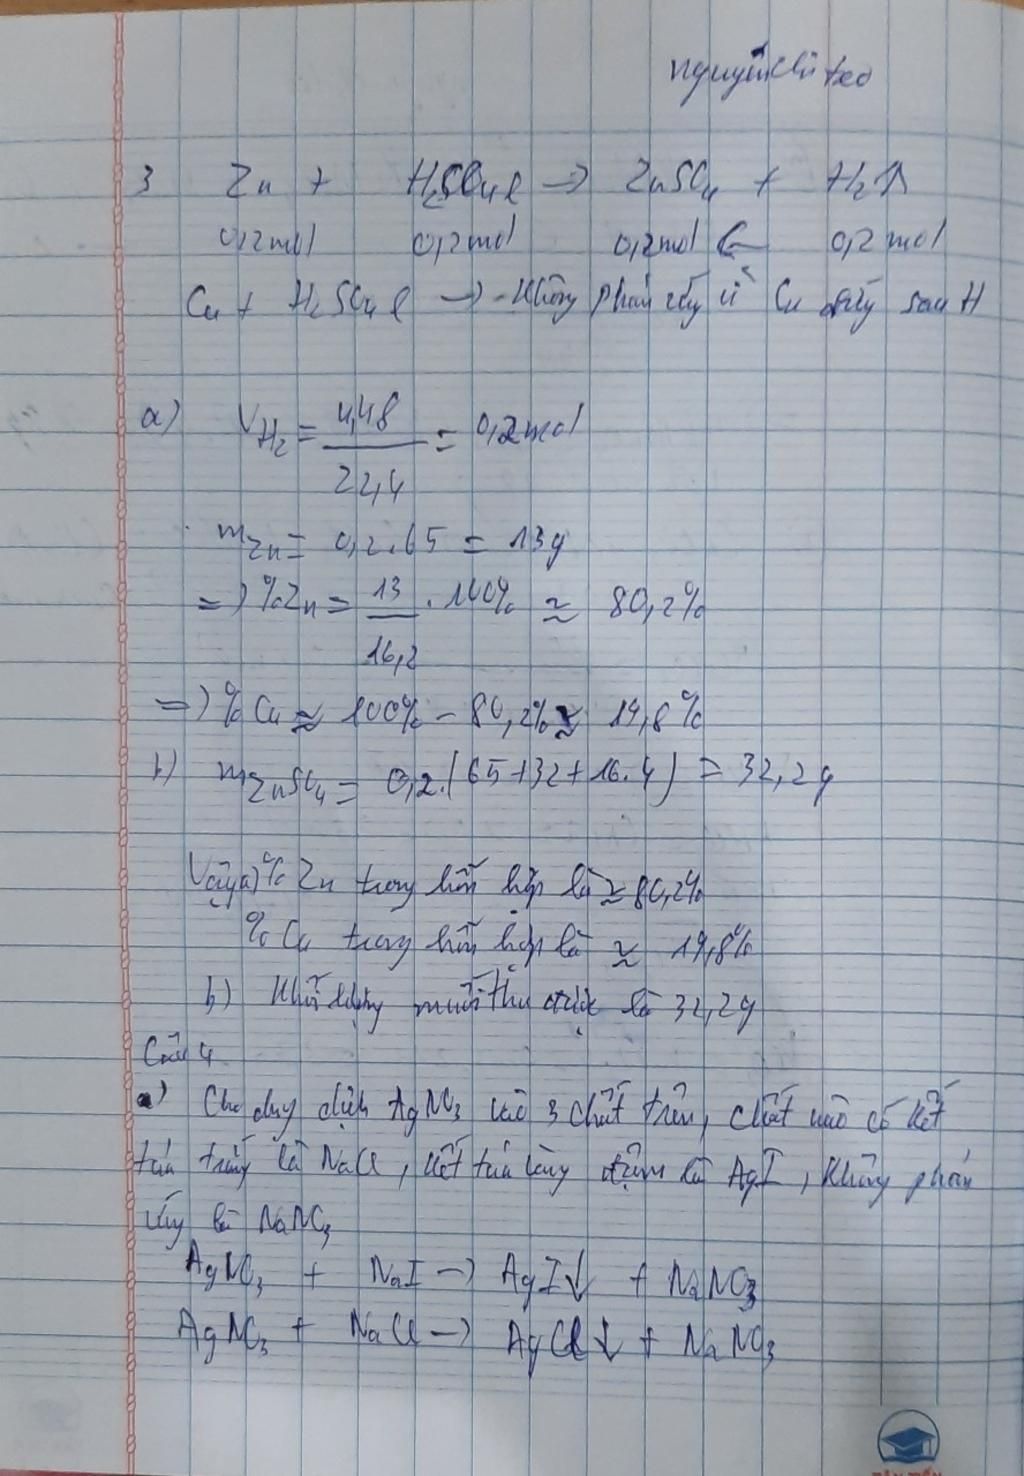 3 Zn + H₂SO₄ l → ZnSO₄ + H₂↑
0,2mol 0,2mol 0,2mol ← 0,2mol
Cu + H₂SO₄ l → Không phản ứng vì Cu đứng sau H
a) VH₂ = 4,48/22,4 = 0,2mol
mZn = 0,2.65 = 13g
=) %Zn = 13/16,2 . 100% ≈ 80,2%
=) % Cu ≈ 100% - 80,2% ≈ 19,8%
b) mZnSO₄ = 0,2.(65+32+16.4) = 32,2g
Vậy a) % Zn trong hỗn hợp là ≈ 80,2%
% Cu trong hỗn hợp là ≈ 19,8%
b) Khối lượng muối thu được là 32,2g
Câu 4
a) Cho dung dịch AgNO₃ vào 3 chất trên, chất nào có kết
tủa trắng là NaCl, kết tủa vàng đậm là AgI, không phản
ứng là NaNO₃
AgNO₃ + NaI → AgI↓ + NaNO₃
AgNO₃ + NaCl → AgCl↓ + NaNO₃